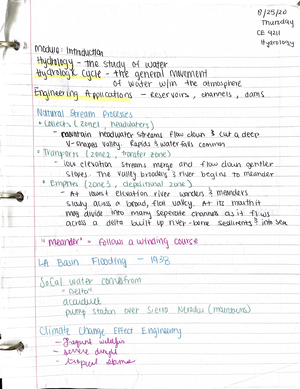 8/25/20
Thursday
CE 4211
Hydrology
Module: Introduction
Hydrology - the study of water
Hydrologic Cycle - the general movement
of water w/in the atmosphere
Engineering Applications - Reservoirs, channels, dams
Natural Stream Processes
* Collects (zone 1, headwaters)
- mountain headwater streams flow down & cut a deep
V-shaped valley. Rapids & waterfalls common
* Transports (zone 2, transfer zone)
- low elevation streams merge and flow down gentler
slopes. The valley broadens & river begins to meander
* Empties (zone 3, depositional zone)
- At lowest elevation river wanders & meanders
slowly across a broad, flat valley. At its mouth it
may divide into many separate channels as it flows
across a delta built up river-borne sediments & into sea
"meander" = follows a winding course
LA Basin Flooding - 1938
SoCal water comes from
"Delta"
aqueduct
pump station over Sierra Nevadas (mountains)
Climate Change Effect Engineering
- frequent wildfires
- severe drought
- tropical storms